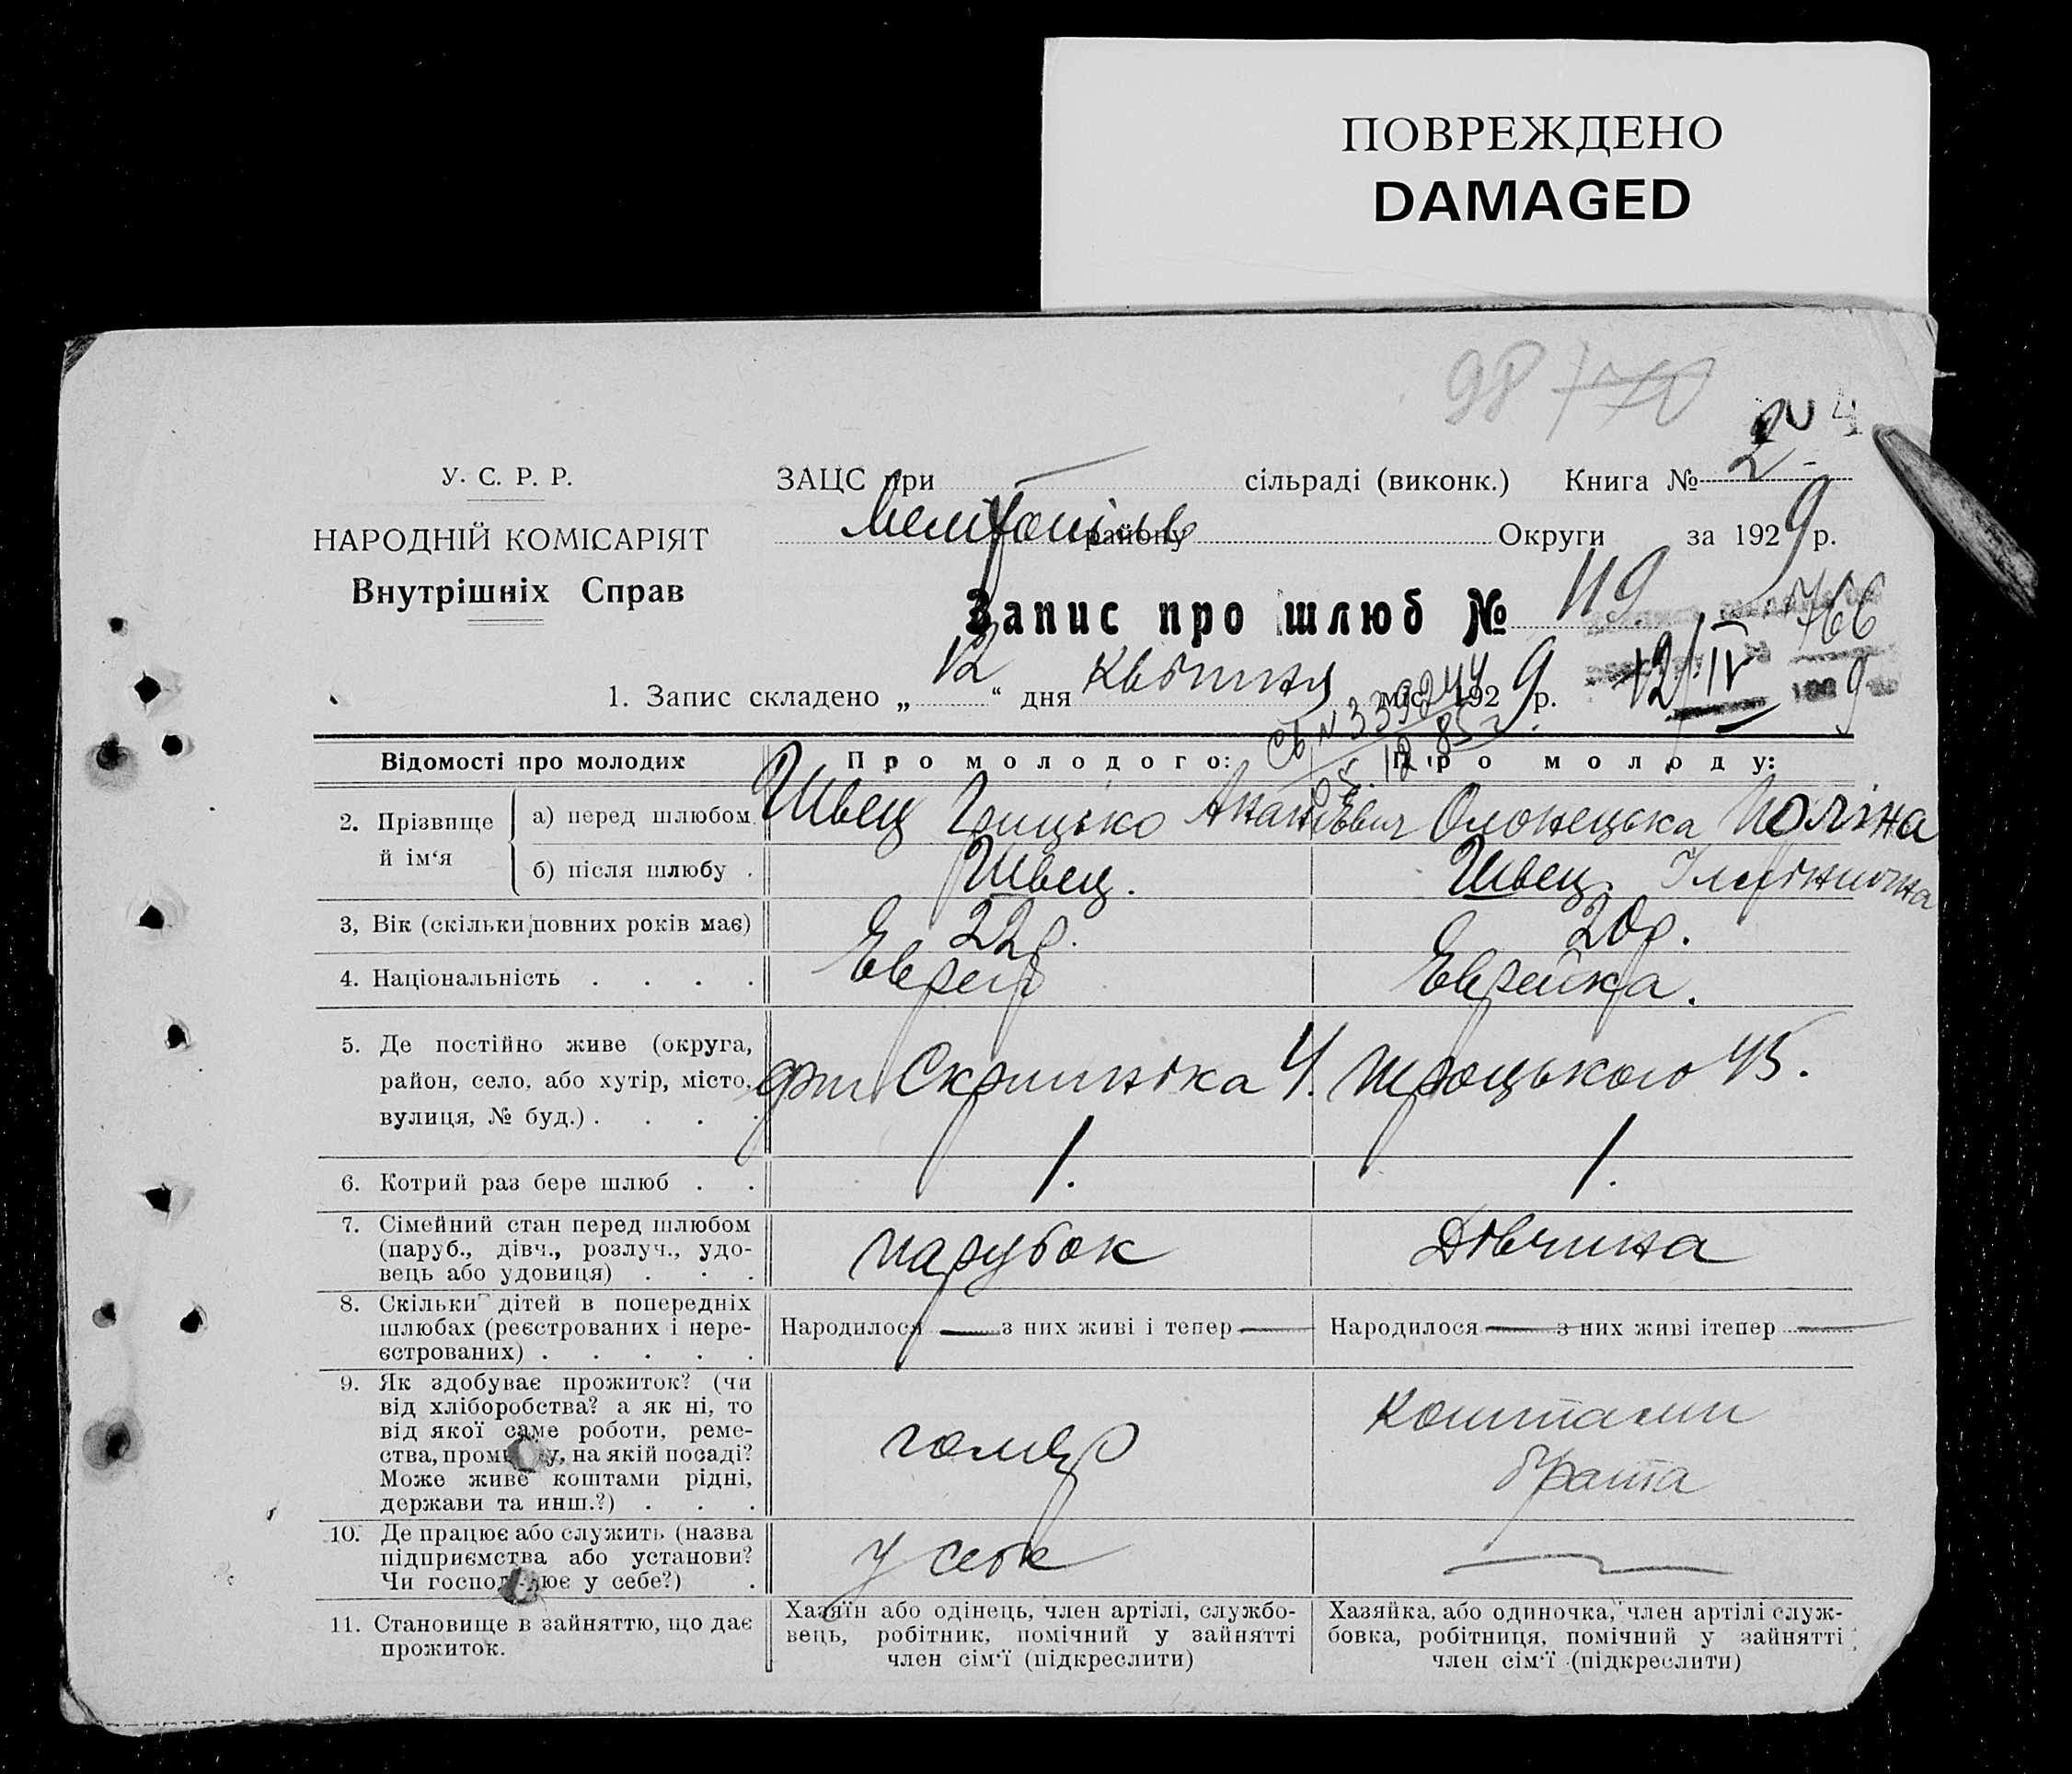 ПОВРЕЖДЕНО
DAMAGED
98 170
У. С. Р. Р.
НАРОДНІЙ КОМІСАРІЯТ
Внутрішніх Справ
ЗАЦС при — сільраді (виконк.) Книга № 2
Мелітопіль району Округи за 1929 р.
Запис про шлюб № 119
766
1. Запис складено „ 12 “ дня Квітня міс. 1929 р.
12/IV
Св N 339244
Відомості про молодих
Про молодого:
Про молоду:
2. Прізвище й ім‘я
а) перед шлюбом
Швец Грицько Ананієвич
Олонецька Поліна
б) після шлюбу .
Швец.
Швец.
3, Вік (скільки повних років має)
22 р.
20 р.
4. Національність . . . .
Еврей
Еврейка.
5. Де постійно живе (округа,
район, село, або хутір, місто,
вулиця, № буд.) . . . .
Скрипніка 4.
Троцького 45.
6. Котрий раз бере шлюб . .
1.
1.
7. Сімейний стан перед шлюбом
(паруб., дівч., розлуч., удо-
вець або удовиця) . . .
парубок
Дівчина
8. Скільки дітей в попередніх
шлюбах (реєстрованих і нере-
єстрованих) . . . . .
Народилося — з них живі і тепер —
Народилося — з них живі ітепер —
9. Як здобуває прожиток? (чи
від хліборобства? а як ні, то
від якої саме роботи, реме-
ства, промислу, на якій посаді?
Може живе коштами рідні,
держави та инш.?) . . .
Коштами
брата
10. Де працює або служить (назва
підприємства або установи?
Чи господарює у себе?) .
у себе
—
11. Становище в зайняттю, що дає
прожиток.
Хазяїн або одінець, член артілі, службо-
вець, робітник, помічний у зайнятті
член сім‘ї (підкреслити)
Хазяйка, або одиночка, член артілі служ-
бовка, робітниця, помічний у зайнятті
член сім‘ї (підкреслити)